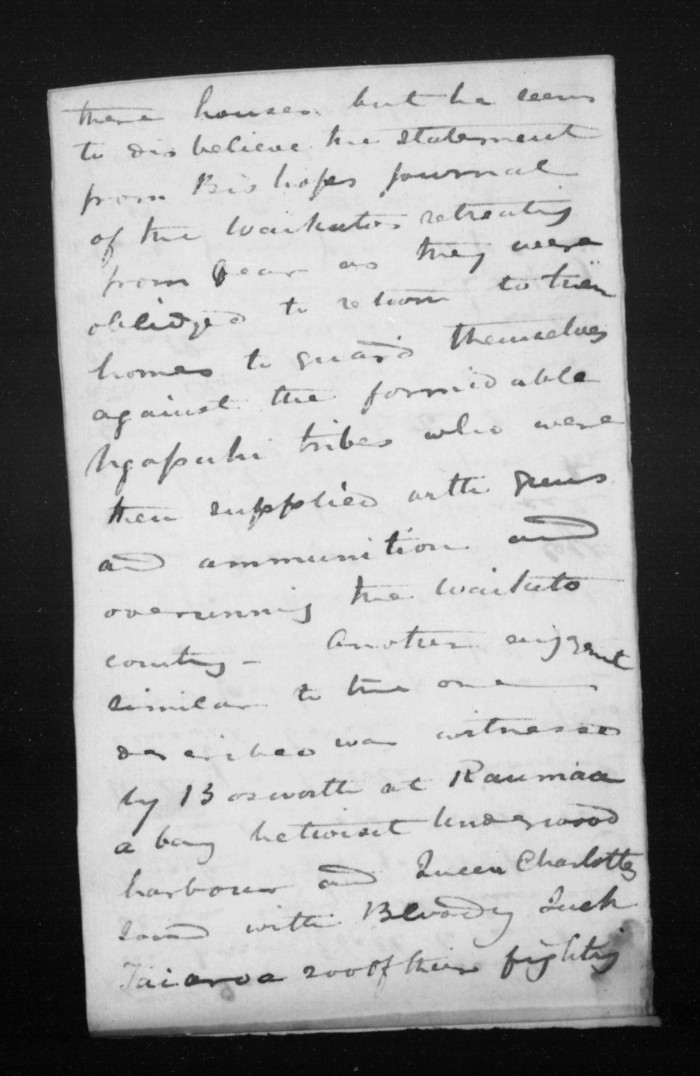 there houses but he seems
to dis believe the statement
from Bishops Journal
of the Waikatos retreating
from fear as they were
obliidged to return to their
homes to guard themselves
against the formidable
Ngapuhi tribes who were
then supplied with guns
and ammunition and
overunning the Waikato
country - Another
similar to the one
described was witnessed
by Bosworth at Raumaa
a bay betwixt Underwood
harbour and Queen Charlottes
Sound with Bloody Jack
Taiaroa 200 of their fighting